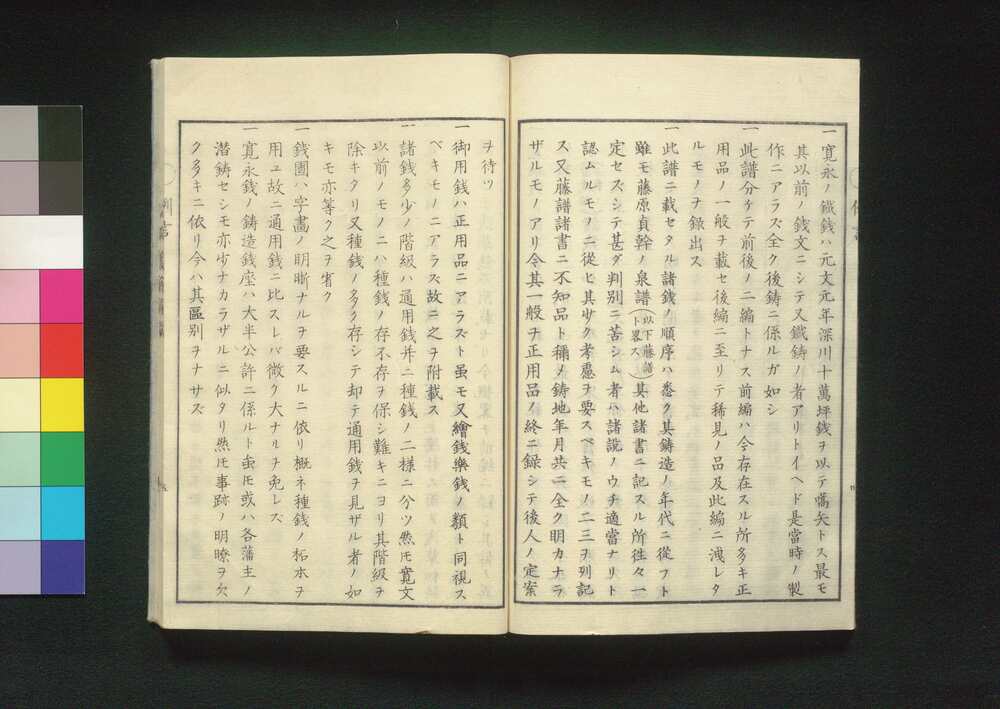 一寛永ノ鐵銭ハ元文元年深川十萬坪銭ヲ以テ嚆矢トス最モ
其以前ノ銭文ニシテ又鐵鋳ノ者アリトイヘド是當時ノ製
作ニアラズ全ク後鋳ニ係ルガ如シ
一此譜分ケテ前後ノ二編トナス前編ハ今存在スル所多キ正
用品ノ一般ヲ載セ後編ニ至リテ稀見ノ品及此編ニ洩レタ
ルモノヲ録出ス
一此譜ニ載セタル諸銭ノ順序ハ悉ク其鋳造ノ年代ニ從フト
雖モ藤原貞幹ノ泉譜(以下藤譜ト畧ス)其他諸書ニ記スル所往々一
定セズシテ甚ダ判別ニ苦シム者ハ諸説ノウチ適當ナリト
認ムルモノニ從ヒ其少ク考慮ヲ要スベキモノ二三ヲ列記
ス又藤譜諸書ニ不知品ト稱ヘ鋳地年月共ニ全ク明カナラ
ザルモノアリ今其一般ヲ正用品ノ終ニ録シテ後人ノ定案
ヲ待ツ
一御用銭ハ正用品ニアラズト虽モ又繪銭樂銭ノ類ト同視ス
ベキモノニアラズ故ニ之ヲ附載ス
一諸銭多少ノ階級ハ通用銭幷ニ種銭ノ二様ニ分ツ然㕝寛文
以前ノモノニハ種銭ノ存不存ヲ保シ難キニヨリ其階級ヲ
除キタリ又種銭ノ多ク存シテ却テ通用銭ヲ見ザル者ノ如
キモ亦等ク之ヲ省ク
一銭圖ハ字畫ノ明晰ナルヲ要スルニ依リ概ネ種銭ノ柘本ヲ
用ユ故ニ通用銭ニ比スレバ微ク大ナルヲ免レズ
一寛永銭ノ鋳造銭座ハ大半公許ニ係ルト虽𪜈或ハ各藩主ノ
潜鋳セシモ亦少ナカラザルニ似タリ然𪜈事跡ノ明瞭ヲ欠
ク多キニ依リ今ハ其區別ヲナサズ
例言